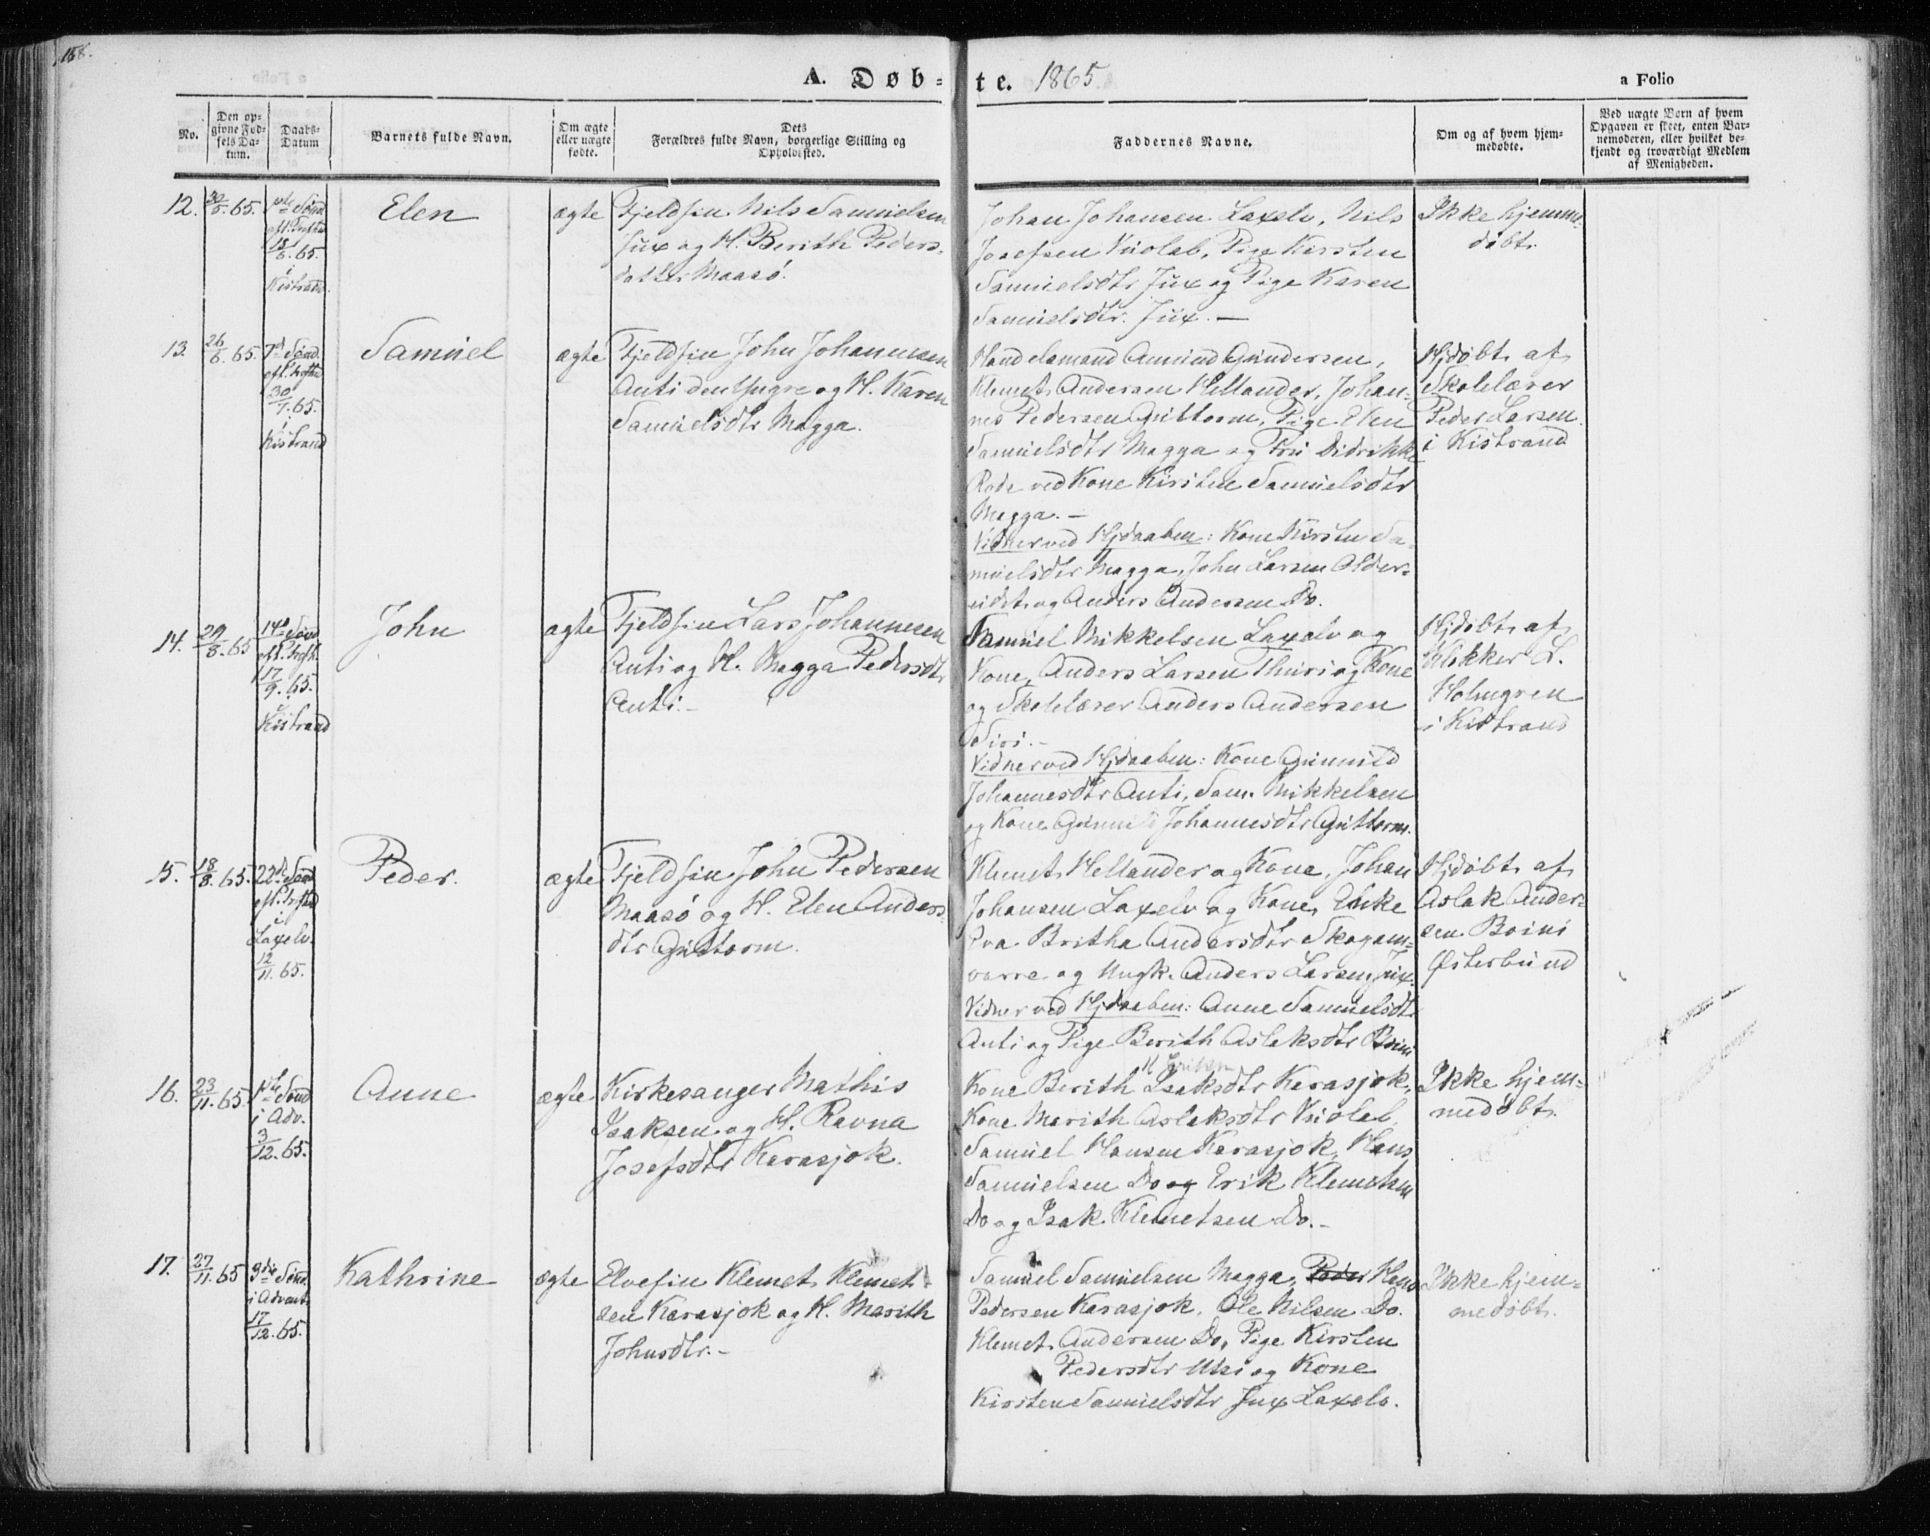 158.
A. Døb-te. 1865.
a Folio
No.
Den op-
givne Fød-
sels Da-
tum.
Daabs-
Datum
Barnets fulde Navn.
Om ægte
eller uægte
fødte.
Dets
Forældres fulde Navn, borgerlige Stilling og
Opholdssted.
Faddernes Navne.
Om og af hvem hjem-
medøbte.
Ved uægte Børn af hvem
Opgaven er skeet, enten Bar-
nemoderen, eller hvilket be-
kjendt og troværdigt Medlem
af Menigheden.
12.
65.
Sønd.
eft. Trefth.
18/6. 65.
i
Kistrand.
Elen
ægte
Fjeldfin Nils Samuelsen
Jux og H. Berith Peders-
datter Maasø.
Johan Johansen Laxelv, Nils
Josefsen Vuolab, Pige Kirsten
Samuelsdtr Jux og Pige Karen
Samuelsdtr. Jux. —
Ikke hjemme-
døbt.
13.
26/6 65.
7d Sønd.
eft. Trefth.
30/7. 65.
i
Kistrand
Samuel
ægte
Fjeldfin John Johannesen
Anti den Yngre og H. Karen
Samuelsdtr Magga.
Handelsmand Amund Gundersen,
Klemet Andersen Hellander, Johan-
nes Pedersen Guttorm, Pige Elen
Samuelsdtr Magga og Fru Didrikke
Rode ved Kone Kirsten Samuelsdtr
Magga. —
Vidner ved Hjdaaben: Kone Kirsten Sa-
muelsdtr Magga, John Larsen Older-
eidet og Anders Andersen Do.
Hjdøbt af
Skolelærer
Peder Larsen
i Kistrand
14.
29/8. 65
14d Sønd
eft. Trefth.
17/9. 65.
i
Kistrand
John
ægte
Fjeldfin Lars Johannesen
Anti og H. Magga Pedersdtr
Anti. —
Samuel Mikkelsen Laxelv og
Kone, Anders Larsen Thuri og Kone
og Skolelærer Anders Andersen
Siri. —
Vidner ved Hjdaaben: Kone Gunnild
Johannesdtr Anti, Sam. Mikkelsen
og Kone Gunnild Johannesdtr Guttorm.
Hjdøbt af
Klokker L.
Holmgren
i Kistrand
15.
18/8. 65.
22d Sønd
eft. Trefth
i
Laxelv.
12/11. 65.
Peder.
ægte
Fjeldfin John Pedersen
Maasø og H. Elen Anders-
dtr Guttorm.
Klemet Hellander og Kone, Johan
Johansen Laxelv og Kone, Enke
Eva Britha Andersdtr Skogam-
varre og Ungk. Anders Larsen Jux.
Vidner ved Hjdaaben: Anne Samuelsdtr
Anti og Pige Berith Aslaksdtr Boini
Hjdøbt af
Aslak Ander-
sen Boini
Østerbund
16.
23/11. 65.
1ste Sønd
i Adv.
3/12. 65.
Anne
ægte
Kirkesanger Mathis
Isaksen og H. Ravna
Josefsdtr Karasjok.
Kone Berith Isaksdtr Karasjok,
Kone Marith Aslaksdtr Vuolab,
Samuel Hansen Karasjok, Hans
Samuelsen Do og Erik Klemetsen
Do og Isak Klemetsen Do. —
Ikke hjem-
medøbt.
17.
27/11. 65
3die Sønd.
i Advent
17/12. 65.
Kathrine
ægte
Elvefin Klemet Klemet-
sen Karasjok og H. Marith
Johnsdtr. —
Samuel Samuelsen Magga, Peder Hans
Pedersen Karasjok, Ole Nilsen Do.
Klemet Andersen Do, Pige Kirsten
Pedersdtr Utsi og Kone
Kirsten Samuelsdtr Jux Laxelv.
Ikke hjem-
medøbt.